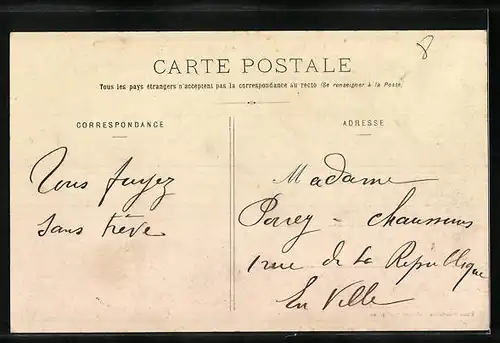 8
CARTE POSTALE
Tous les pays étrangers n'acceptent pas la correspondance au recto (Se renseigner à la Poste)
CORRESPONDANCE
ADRESSE
Vous fuyez
sans trève
Madame
Porrey - Chaussures
1 rue de la République
En Ville